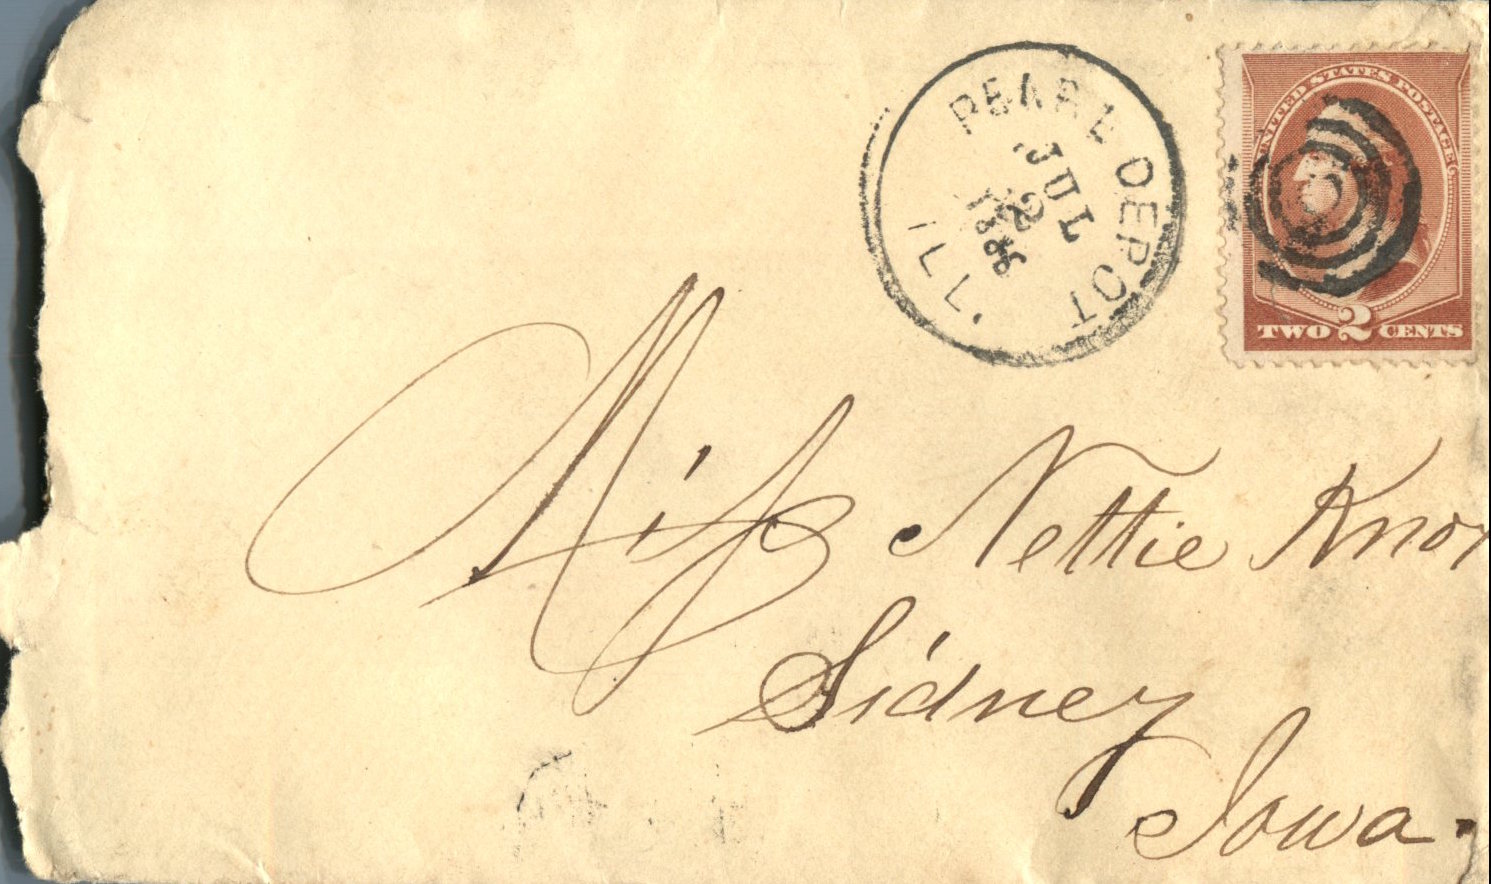 PEARL DEPOT
JUL
2
1886
ILL.
UNITED STATES POSTAGE
TWO 2 CENTS
Miss Nettie Knox
Sidney
Iowa.